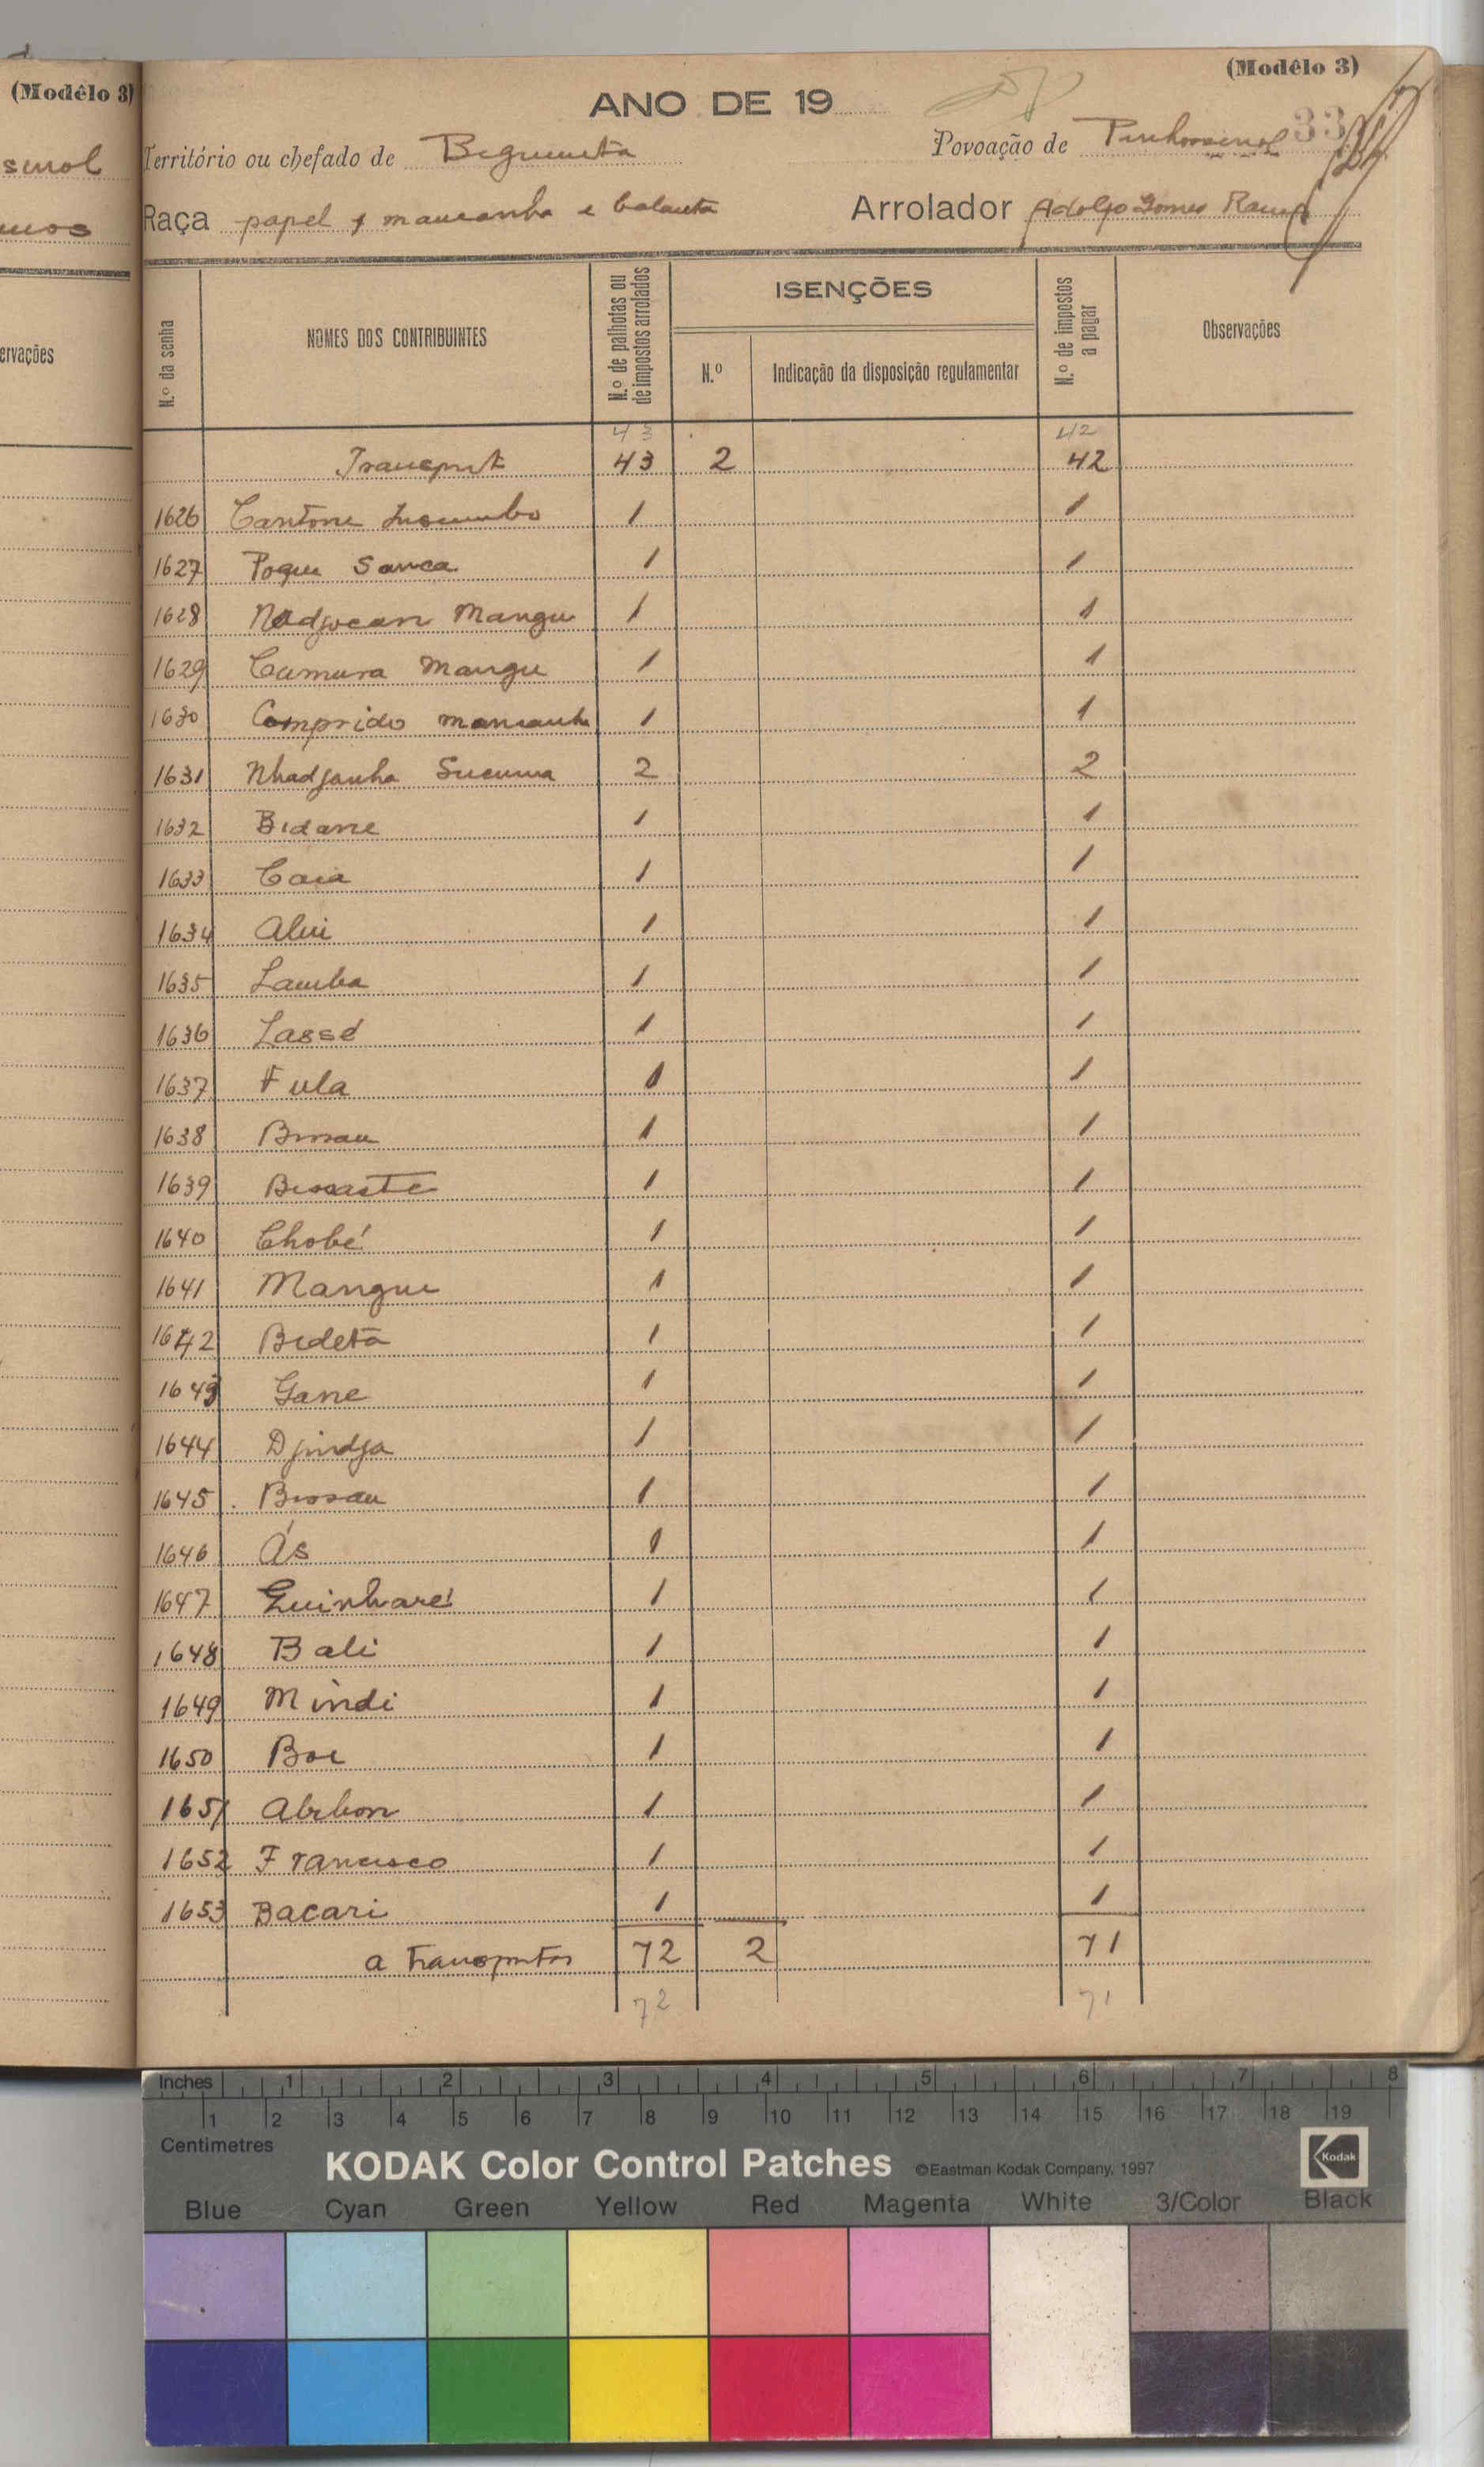 (Modêlo 3)
(Modêlo 3)
33
ANO DE 19
Território ou chefado de
Povoação de
sinol
Raça papel, mancanha e balanta
Arrolador Adolfo Gomes Ramos
ervações
N.º da senha
NOMES DOS CONTRIBUINTES
N.º de palhotas ou de impostos arrolados
ISENÇÕES
N.º
Indicação da disposição regulamentar
N.º de impostos a pagar
Observações
43 42
Transporte 43 2 42
1626 1 1
1627 Poque Sanca 1 1
1628 Mangu 1 1
1629 Camura Mangu 1 1
1630 Comprido mancanha 1 1
1631 Nhadjanha Sucuma 2 2
1632 Bidane 1 1
1633 Caia 1 1
1634 Alui 1 1
1635 Lamba 1 1
1636 Lassé 1 1
1637 Fula 1 1
1638 Bissau 1 1
1639 1 1
1640 Chobé 1 1
1641 Mangue 1 1
1642 Bideta 1 1
1643 Gane 1 1
1644 Djindja 1 1
1645 Bissau 1 1
1646 Ás 1 1
1647 Quinharé 1 1
1648 Bali 1 1
1649 Mindi 1 1
1650 Boe 1 1
1651 1 1
1652 Francisco 1 1
1653 Bacari 1 1
a Transportar 72 2 71
72 71
Inches 1 2 3 4 5 6 7 8
1 2 3 4 5 6 7 8 9 10 11 12 13 14 15 16 17 18 19
Centimetres
KODAK Color Control Patches ©Eastman Kodak Company, 1997 Kodak
Blue Cyan Green Yellow Red Magenta White 3/Color Black